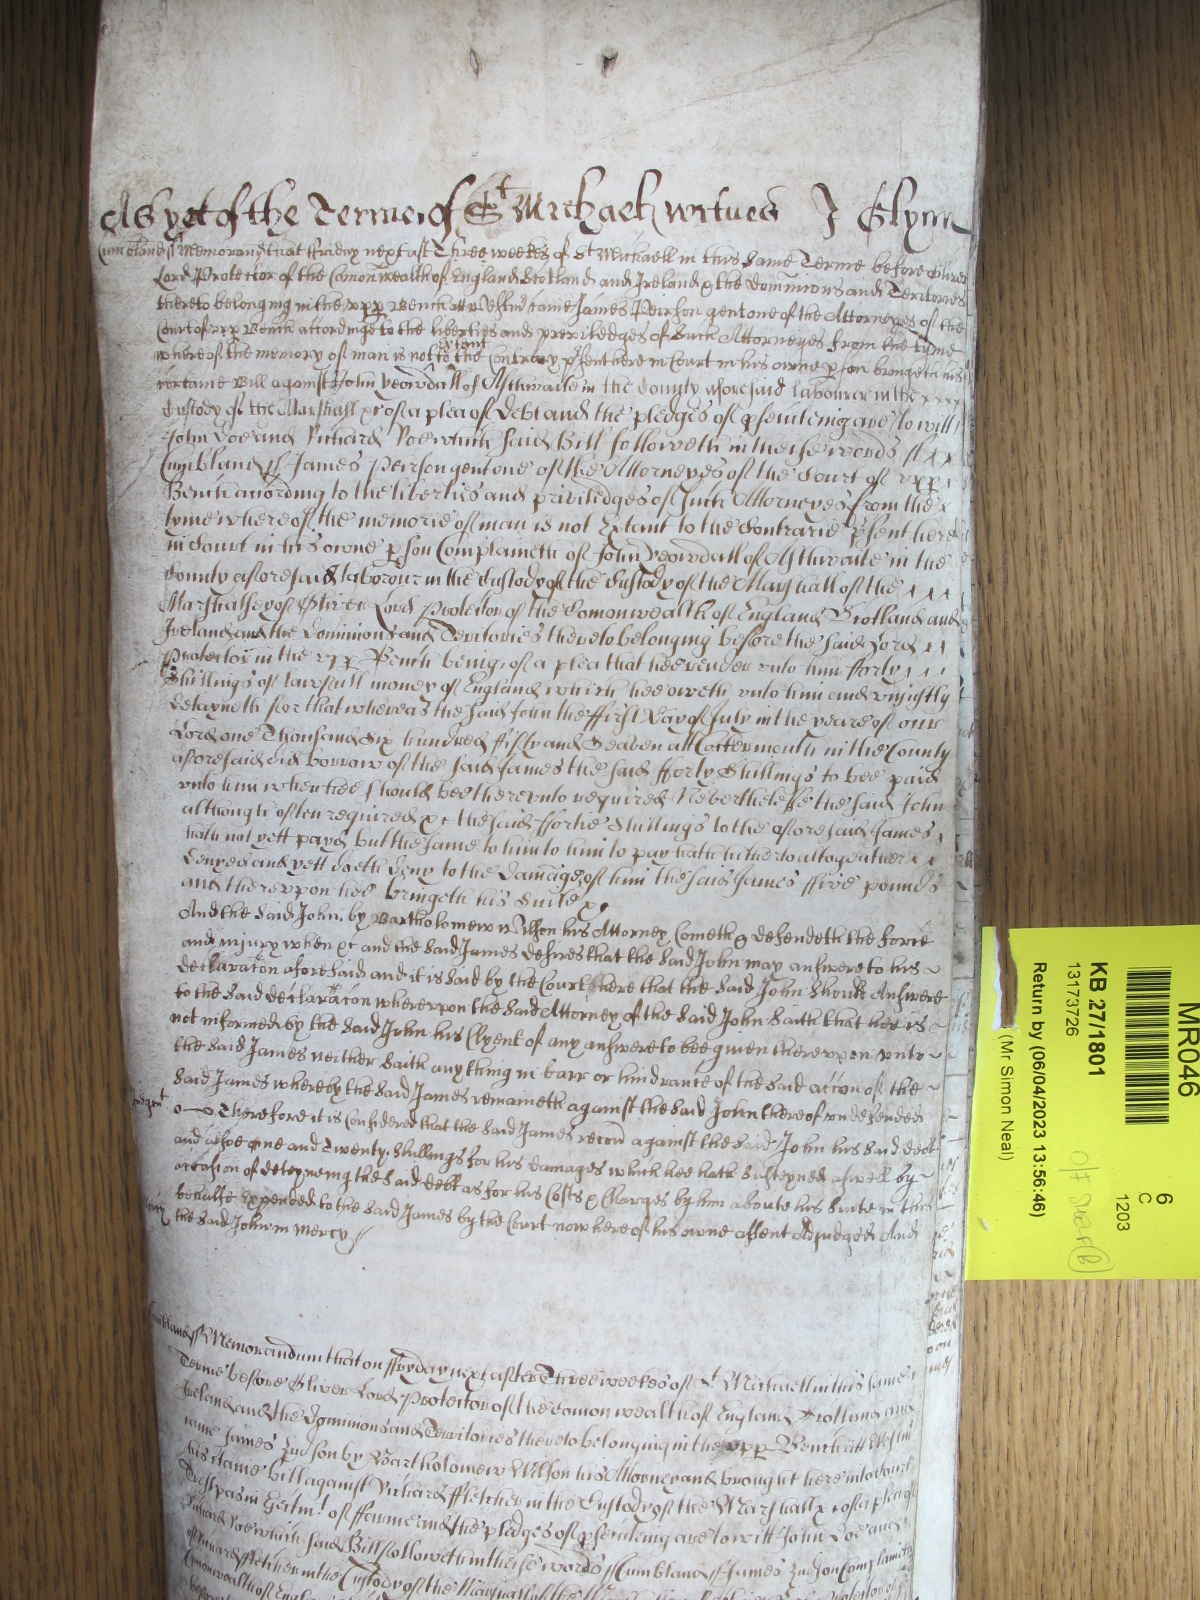 As yet of the Terme of St Michael wittnes J Glynn
Cumbland ss Memorand that Friday next aft Three weekes of St Michaell in this same Terme before Oliver
Lord Protector of the Comonwealth of England Scotland and Ireland & the Dominions and Territories
thereto belonging in the upp Bench att Westm came James Peirson gent one of the Attorneyes of the
Court of upp Bench accordinge to the liberties and priviledges of such Attorneyes from the tyme
whereof the memory of man is not extant to the Contrary psent here in Court in his owne pson bringeth his
certaine Bill against John Yeowdall of Asthwaite in the County aforesaid labourer in the
Custody of the Marshall &c of a plea of Debt and the pledges of psecuteing are to witt
John Doe and Richard Roe which said Bill followeth in theise words ss
Cumbland ss James Peirson gent one of the Attorneyes of the Court of upp
Bench according to the liberties and priviledges of such Attorneyes from the
tyme whereof the memorie of man is not Extant to the Contrarie psent here
in Court in his owne pson Complaineth of John Yeowdall of Asthwaite in the
County aforesaid laborour in the Custody of the Custody of the Marshall of the
Marshalsey of Oliver Lord Protector of the Comonwealth of England Scotland and
Ireland and the Dominions and Territories thereto belonging before the said Lord
Protector in the upp Bench being, of a plea that hee render unto him fforty
Shillings of lawfull money of England which hee oweth unto him and unjustly
Detayneth ffor that whereas the said John the ffirst Day of July in the yeare of our
Lord one Thousand Six hundred ffifty and Seaven att Cockermouth in the County
aforesaid did borrow of the said James the said fforty Shillings to bee paid
unto him when hee should bee thereunto required Neverthelesse the said John
although often required &c the said ffortie Shillings to the aforesaid James
hath not yett payd but the same to him to him to pay hath hitherto altogeather
Denyed and yett doeth Deny to the Damage of him the said James ffive pounds
and thereupon hee bringeth his Suite &c
And the said John by Bartholomew Wilson his Attorney Cometh & defendeth the force
and injury when &c and the said James desires that the said John may answere to his
declaracon aforesaid and it is said by the Court here that the said John should Answere
to the said declaracon whereupon the said Attorney of the said John saith that hee is
not informed by the said John his Clyent of any answere to bee given thereupon unto
the said James neither saith any thing in barr or hindrance of the said accon of the
said James whereby the said James remaineth against the said John thereof undefended
Judgmt Therefore it is Considered that the said James recover against the said John his said debt
and alsoe one and Twenty shillings for his damages which hee hath susteyned aswell by
occasion of deteyneing the said debt as for his Costs & Charges by him aboute his Suite in this
behalfe Expended to the said James by the Court now here of his owne assent Adjudged And
the said John in Mercy
Cumbland ss Memorandum that on ffryday next after Three weekes of St Michaell in this same
Terme before Oliver Lord Protector of the Comonwealth of England Scotland and
Ireland and the Dominions and Territories thereto belonging in the upp Bench att Westm
came James Judson by Bartholomew Wilson his Attorney and brought here into Court
his certaine bill against Richard ffletcher in the Custody of the Marshall &c of a plea of
Trespas in Ejectmt of ffarme and the pledges of psecuteing are to witt John Doe and
Richard Roe which said Bill followeth in theise words ss Cumbland ss James Judson Complaineth
of Richard ffletcher in the Custody of the Marshall of the
Comonwealth of England
MR046
6
C
1203
KB 27/1801
13173726
(Mr Simon Neal)
Return by (06/04/2023 13:56:46)